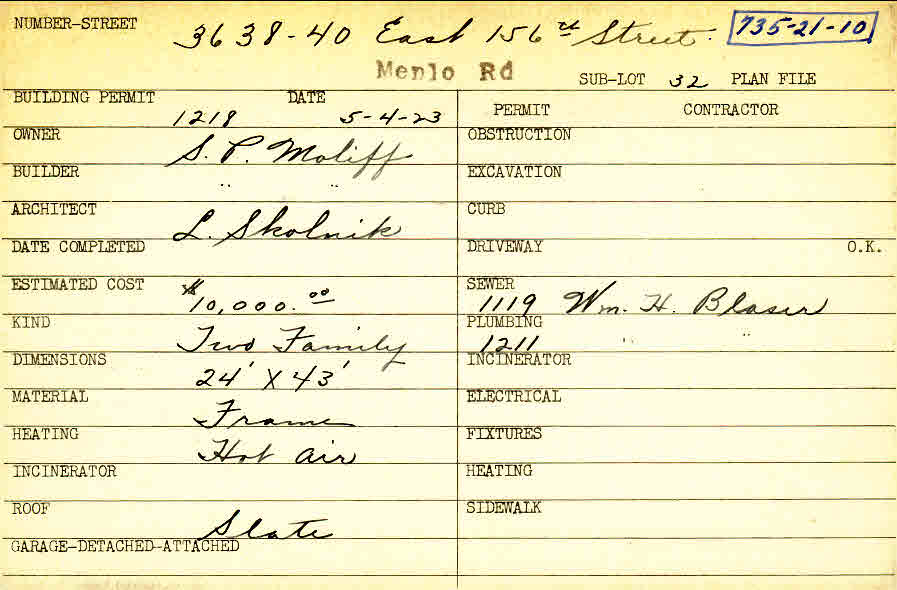 NUMBER-STREET 3638-40 East 156th Street. 735-21-10
Menlo Rd
SUB-LOT 32 PLAN FILE
BUILDING PERMIT 1218 DATE 5-4-23
PERMIT CONTRACTOR
OWNER S. P. Moliff
BUILDER " "
ARCHITECT L. Skolnik
DATE COMPLETED
ESTIMATED COST $10,000.00
KIND Two Family
DIMENSIONS 24' X 43'
MATERIAL Frame
HEATING Hot air
INCINERATOR
ROOF Slate
GARAGE-DETACHED-ATTACHED
OBSTRUCTION
EXCAVATION
CURB
DRIVEWAY O.K.
SEWER 1119 Wm. H. Blaser
PLUMBING 1211 " "
INCINERATOR
ELECTRICAL
FIXTURES
HEATING
SIDEWALK